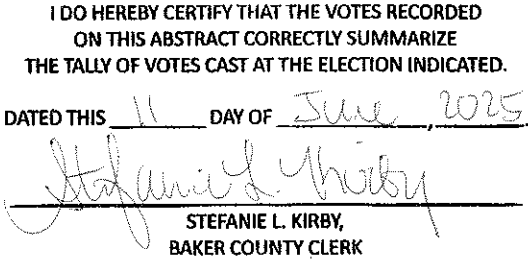 I DO HEREBY CERTIFY THAT THE VOTES RECORDED
ON THIS ABSTRACT CORRECTLY SUMMARIZE
THE TALLY OF VOTES CAST AT THE ELECTION INDICATED.
DATED THIS 11 DAY OF June, 2025.
Stefanie L. Kirby
STEFANIE L. KIRBY,
BAKER COUNTY CLERK